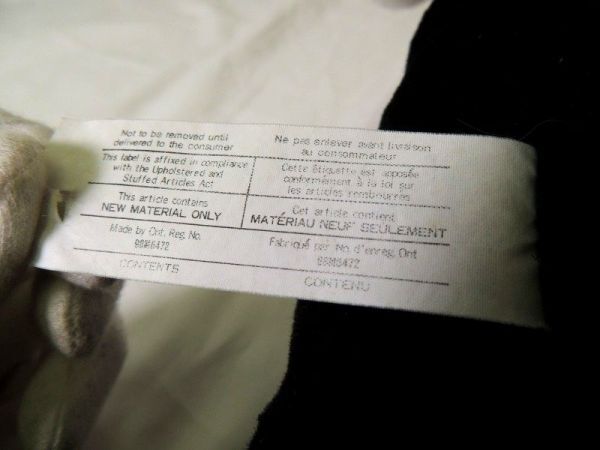 Not to be removed until
delivered to the consumer
This label is affixed in compliance
with the Upholstered and
Stuffed Articles Act
This article contains
NEW MATERIAL ONLY
Made by Ont. Reg. No.
CONTENTS
Ne pas enlever avant livraison
au consommateur
Cette étiquette est apposée
conformément à la loi sur
les articles rembourrés
Cet article contient
MATÉRIAU NEUF SEULEMENT
Fabriqué par No. d'enreg. Ont
CONTENU